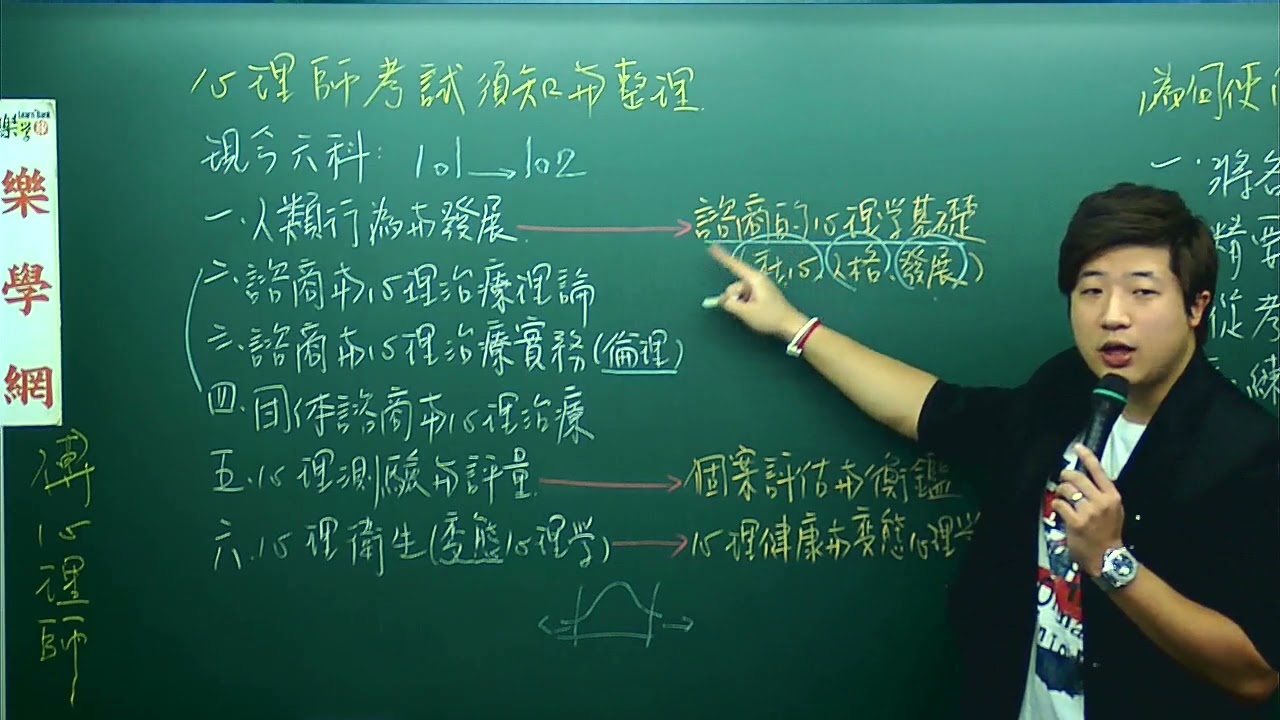 心理師考試須知与整理
現今六科: 101→102
一.人類行為与發展 → 諮商的心理学基礎
(社心、人格、發展)
二.諮商与心理治療理論
三.諮商与心理治療實務(倫理)
四.团体諮商与心理治療
五.心理測驗与評量 → 個案評估与衡鑑
六.心理衛生(変態心理学) → 心理健康与変態心理学
為何使
一.將各
精要
從考
練
Learn Bank
樂學網
傅心理師